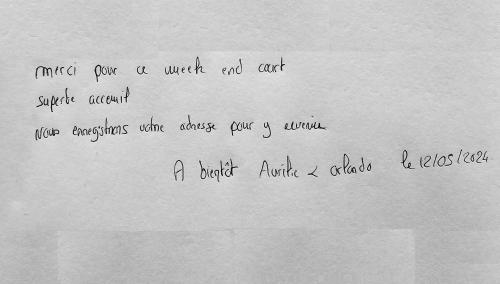 merci pour ce week end court
superbe acceuil
Nous enregistrons votre adresse pour y revenir
A bientôt Aurélie & orlando le 12/05/2024